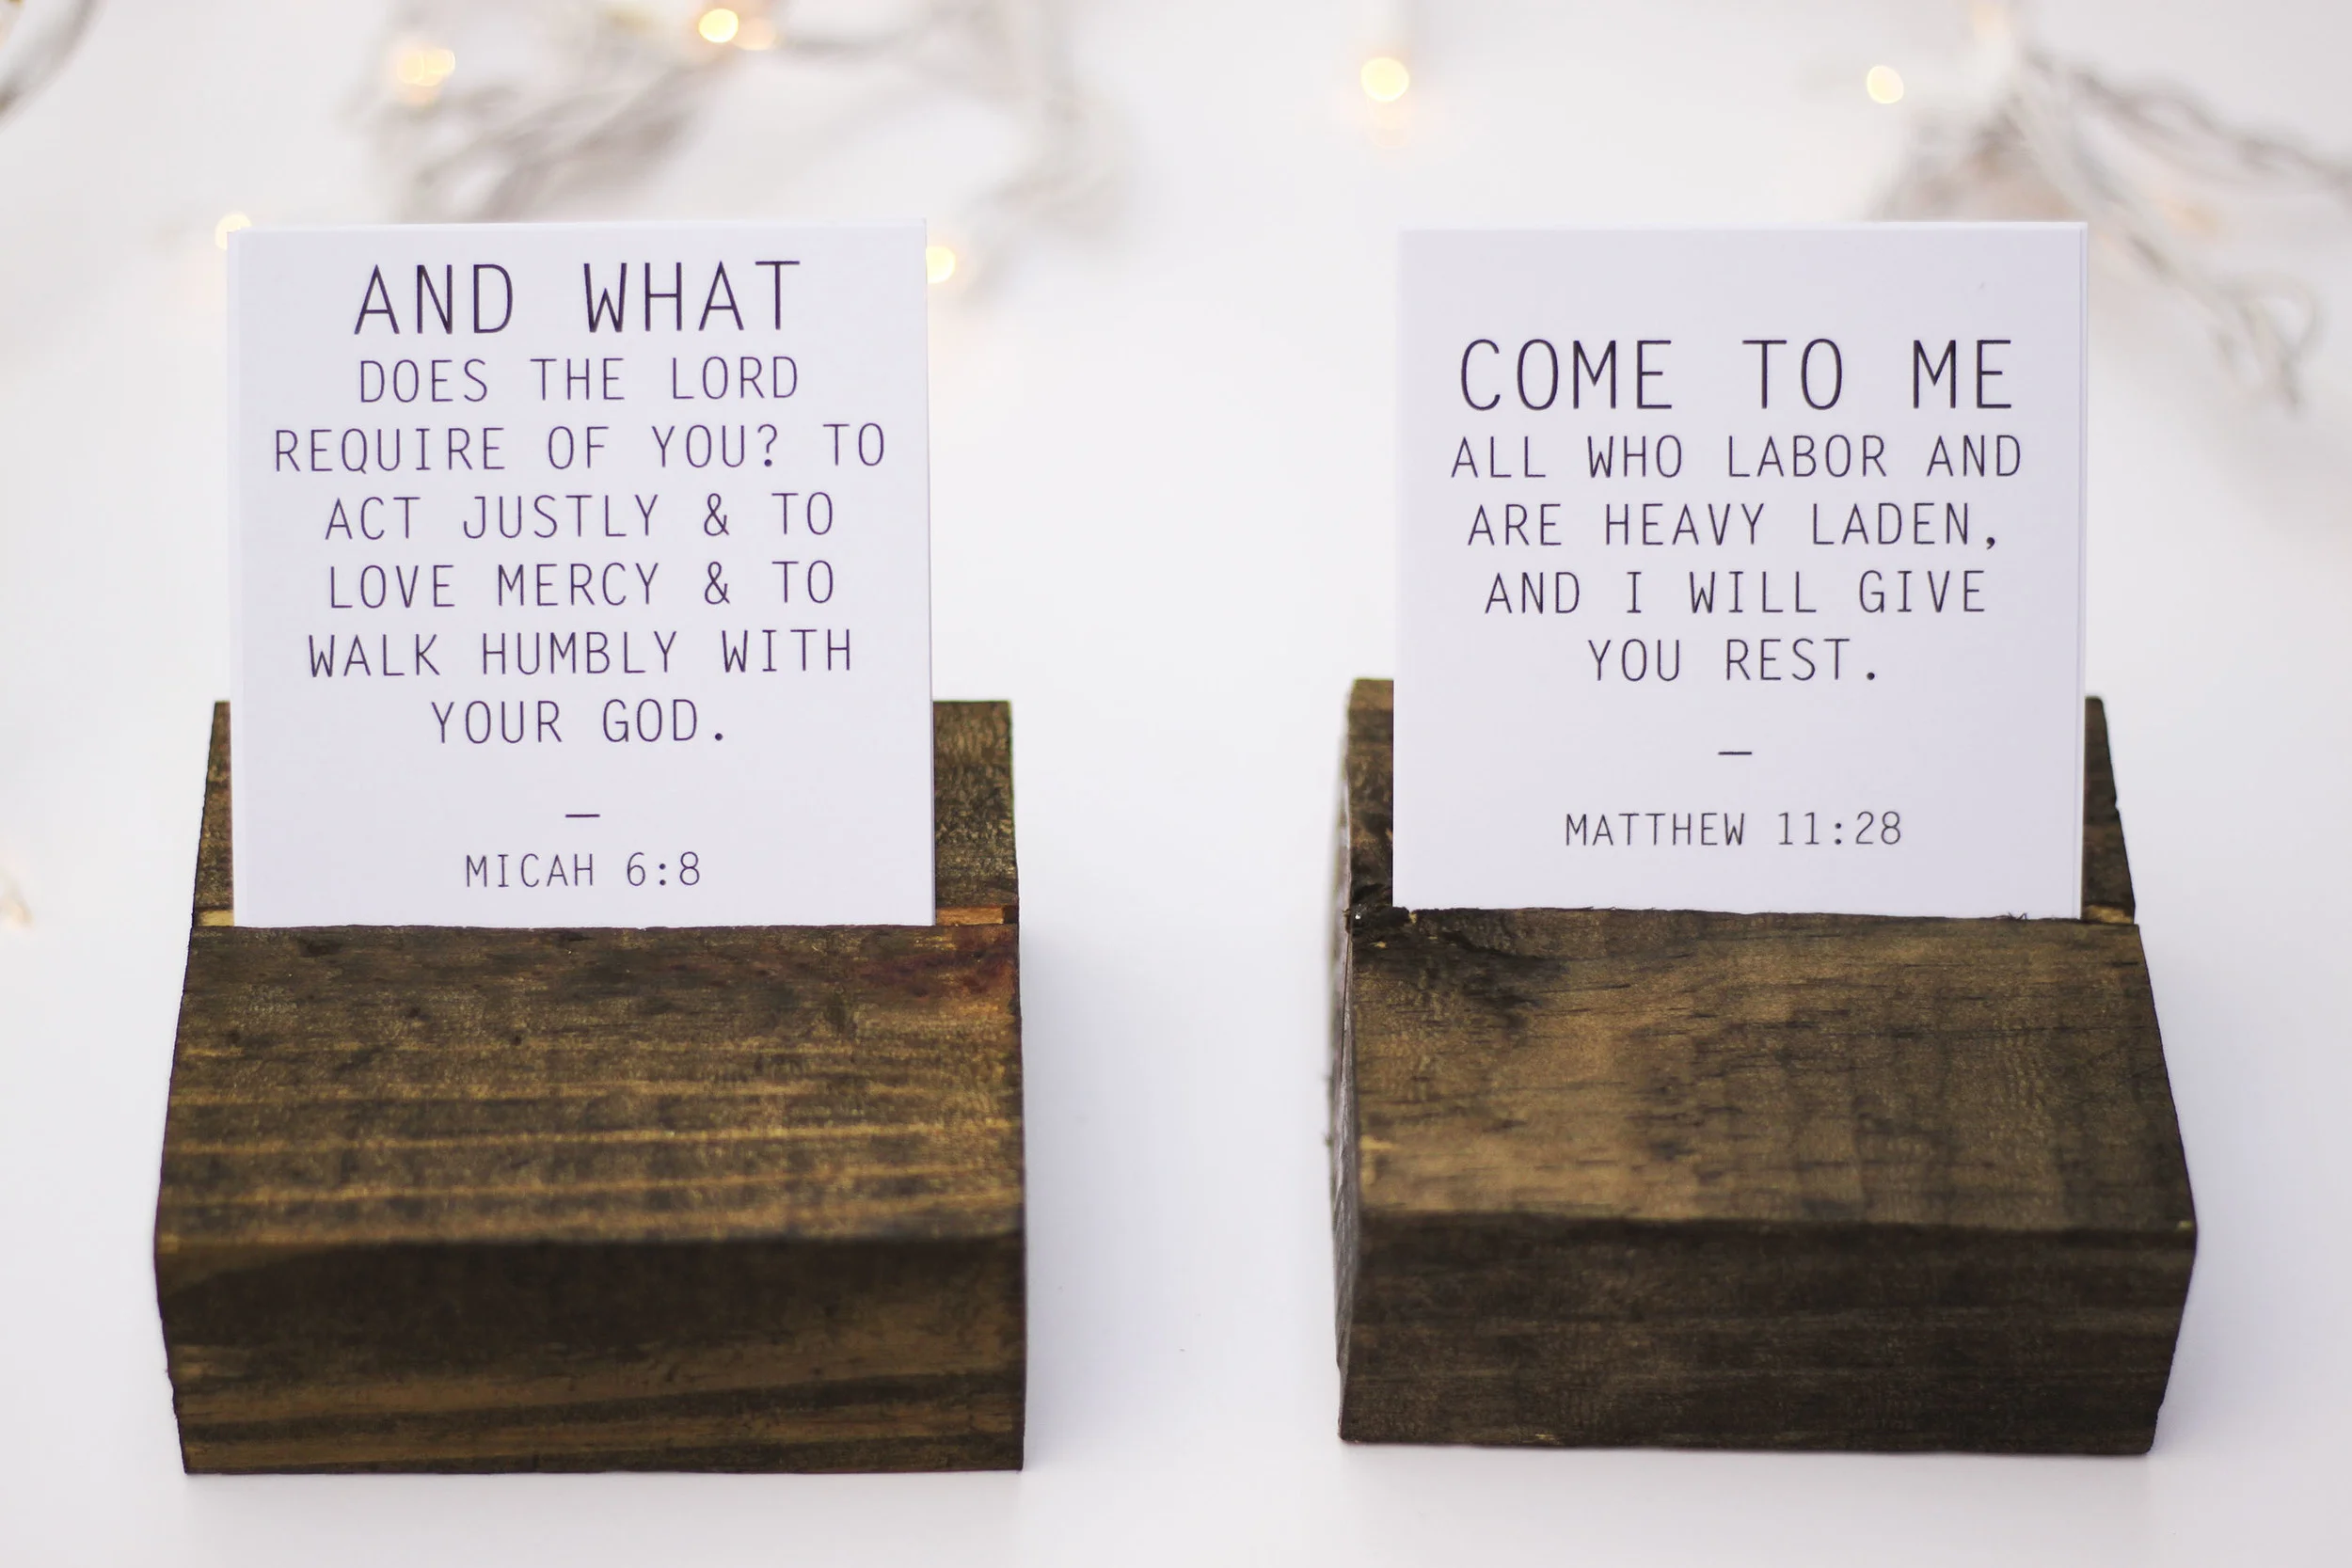 AND WHAT
DOES THE LORD
REQUIRE OF YOU? TO
ACT JUSTLY & TO
LOVE MERCY & TO
WALK HUMBLY WITH
YOUR GOD.
—
MICAH 6:8
COME TO ME
ALL WHO LABOR AND
ARE HEAVY LADEN,
AND I WILL GIVE
YOU REST.
—
MATTHEW 11:28